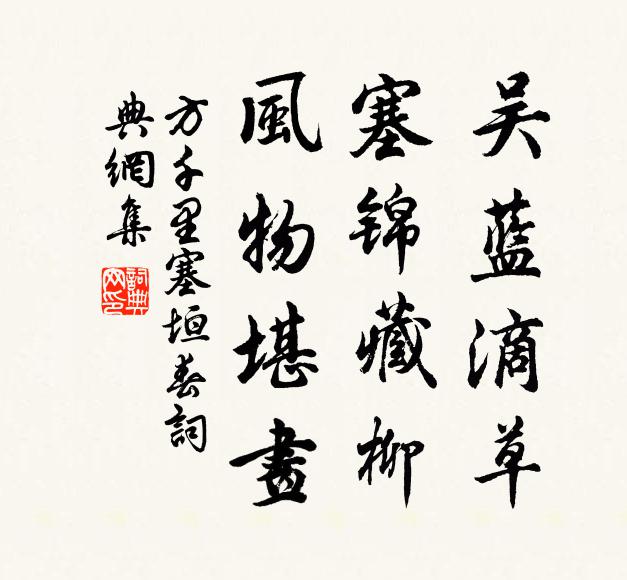 吴藍滴草
塞锦藏柳
風物堪畫
方千里塞垣春詞
典網集
詞典網印